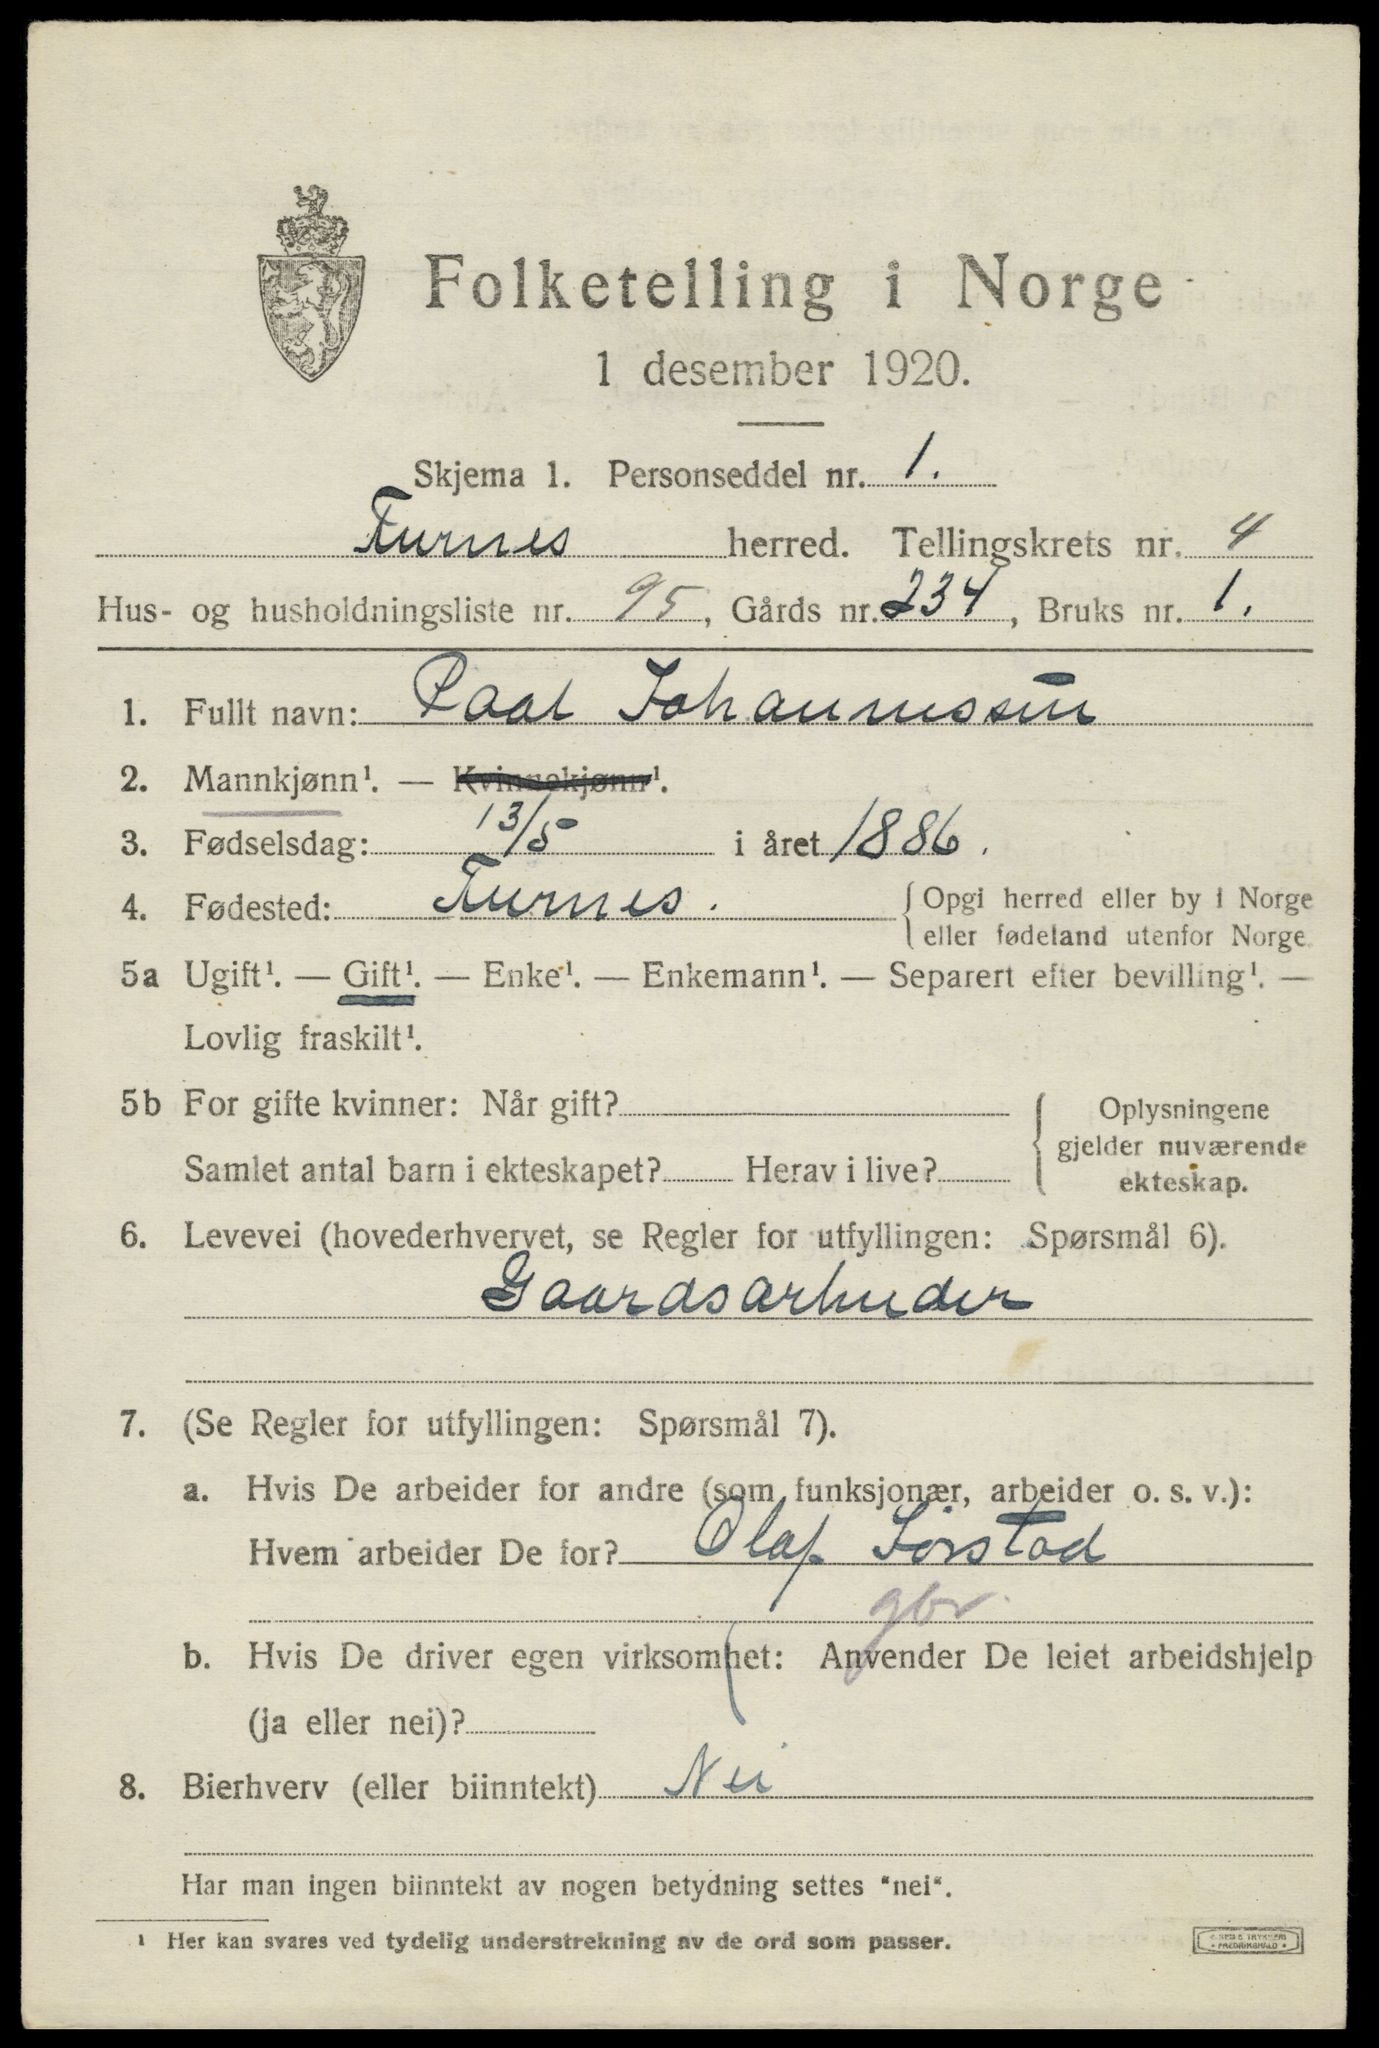 Folketelling i Norge
1 desember 1920.
Skjema 1. Personseddel nr. 1.
Furnes herred. Tellingskrets nr. 4
Hus- og husholdningsliste nr. 95, Gårds nr. 234, Bruks nr. 1.
1. Fullt navn: Paal Johannessen
2. Mannkjønn¹. — Kvinnekjønn¹.
3. Fødselsdag: 13/5 i året 1886.
4. Fødested: Furnes. { Opgi herred eller by i Norge
eller fødeland utenfor Norge
5a Ugift¹. — Gift¹. — Enke¹. — Enkemann¹. — Separert efter bevilling¹. —
Lovlig fraskilt¹.
5b For gifte kvinner: Når gift? { Oplysningene
gjelder nuværende
Samlet antal barn i ekteskapet? Herav i live?
ekteskap.
6. Levevei (hovederhvervet, se Regler for utfyllingen: Spørsmål 6).
Gaardsarbeider
7. (Se Regler for utfyllingen: Spørsmål 7).
a. Hvis De arbeider for andre (som funksjonær, arbeider o. s. v.):
Hvem arbeider De for? Olaf Sörstad
gbr.
b. Hvis De driver egen virksomhet: Anvender De leiet arbeidshjelp
(ja eller nei)?
8. Bierhverv (eller biinntekt) Nei
Har man ingen biinntekt av nogen betydning settes "nei".
¹ Her kan svares ved tydelig understrekning av de ord som passer.